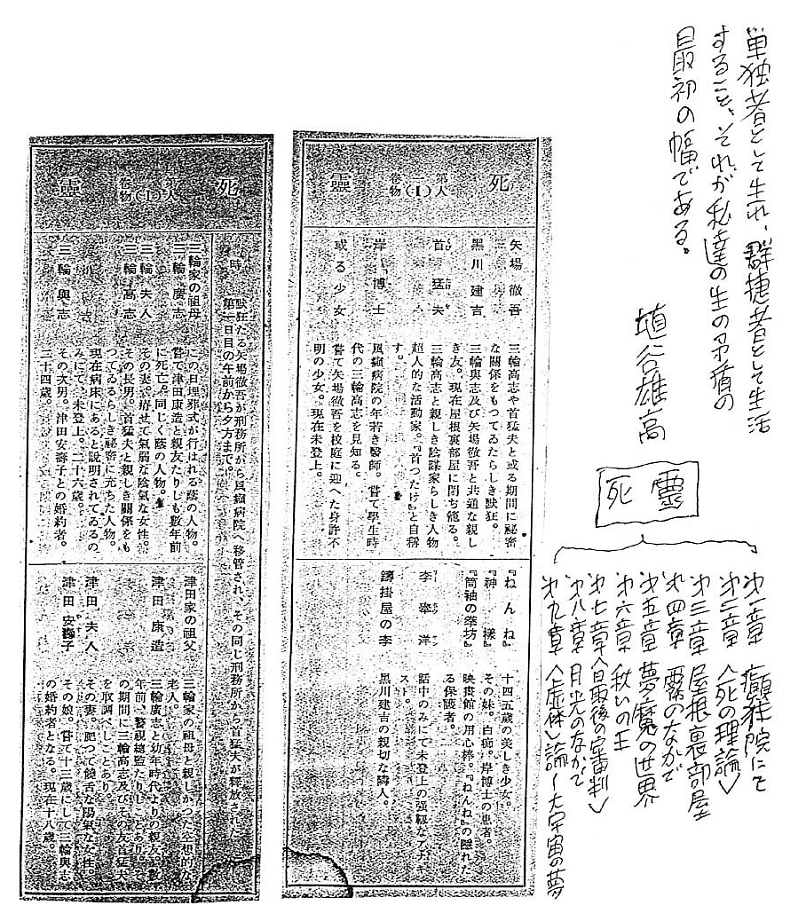 単独者として生れ、群捷者として生活
すること、それが私達の生の矛盾の
最初の幅である。
埴谷雄高
死靈
第一章 癲狂院にて
第二章 〈死の理論〉
第三章 屋根裏部屋
第四章 霧のなかで
第五章 夢魔の世界
第六章 〈愁いの王
第七章 〈最後の審判〉
第八章 月光のなかで
第九章 〈虚体〉論―大宇宙の夢
死
第一卷
人物(1)
靈
矢場徹吾
三輪高志や首猛夫と或る期間に秘密
な關係をもつてゐたらしき默狂。
黑川建吉
三輪與志及び矢場徹吾と共通な親し
き友。現在屋根裏部屋に閉ぢ籠る。
首猛夫
三輪高志と親しき陰謀家らしき人物
超人的な活動家。『首つたけ』と自稱
す。
岸博士
風癲病院の年若き醫師。嘗て學生時
代の三輪高志を見知る。
或る少女
嘗て矢場徹吾を校庭に迎へた身許不
明の少女。現在未登上。
『ねんね』
十四五歲の美しき少女。
『神樣』
その妹。白痴。岸博士の患者。
『筒袖の拳坊』
映畫館の用心棒。『ねんね』の隱れた
る保護者。
李奉洋
話中のみにて未登上の强靱なアナキ
スト。
鑄掛屋の李
黑川建吉の親切な隣人。
死
卷
人物(1)
靈
時
默狂たる矢場徹吾が刑務所から風癲病院へ移管され、その同じ刑務所から首猛夫が釋放された
第一日目の午前から夕方まで。
三輪家の祖母
この日埋葬式が行はれる蔭の人物。
三輪廣志
嘗て津田康造と親友たりしも數年前
に死亡。同じく蔭の人物。
三輪夫人
その妻。瘠せて氣弱な陰氣な女性。
三輪高志
その長男。首猛夫と親しき關係をも
つてゐるらしき秘密に充ちた人物。
現在病床にあると說明されてゐるの
みにて、未登上。二十六歲。
三輪與志
その次男。津田安壽子との婚約者。
二十四歲。
津田家の祖父
三輪家の祖母と親しかつた空想的な
老人。
津田康造
三輪廣志と幼年時代よりの親友。數
年前、警視總監たりしことあり。そ
の期間に三輪高志及びその友首猛夫
を取調べしことあり。
津田夫人
その妻。肥つて饒舌な陽氣な女性。
津田安壽子
その娘。嘗て十三歲にして三輪與志
の婚約者となる。現在十八歲。